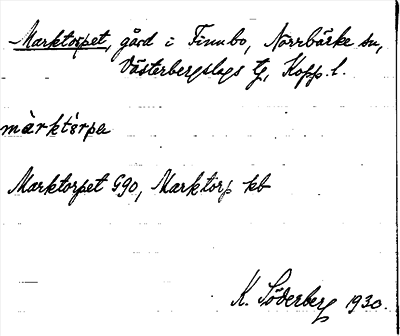 Marktorpet, gård i Finnbo, Norrbärke sn,
Västerbergslags tg, Kopp. l.
màrktʹɛrpa
Marktorpet G90, Marktorp kb
K. Söderberg 1930.